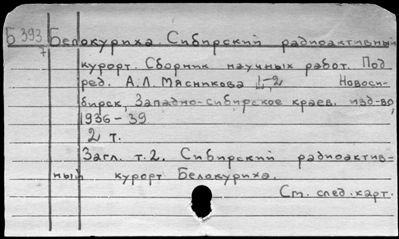 Б 393 Белокуриха Сибирский радиоактивный
7 курорт. Сборник научных работ. Под
ред. А.Л. Мясникова 1-2 Новоси-
бирск, Западно-сибирское краев. изд-во,
1936-39
2 т.
Загл. т.2. Сибирский радиоактив-
ный курорт Белокуриха.
См. след. карт.